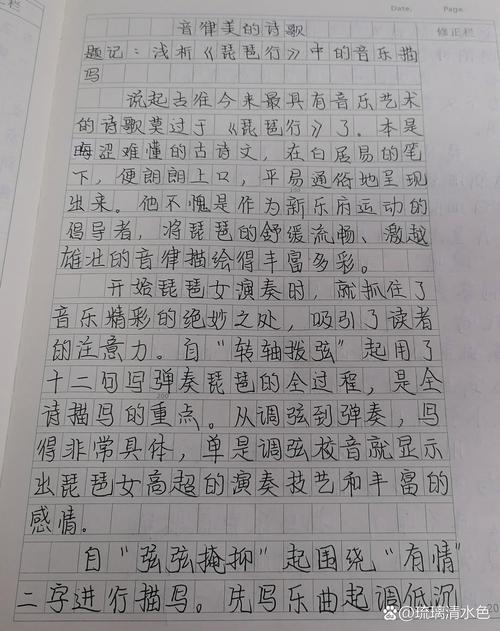 Date.  Page.
栏
修正栏
音律美的诗歌
题记：浅析《琵琶行》中的音乐描
写
说起古往今来最具有音乐艺术
的诗歌莫过于《琵琶行》了。本是
晦涩难懂的古诗文，在白居易的笔
下，便朗朗上口，平易通俗地呈现
出来。他不愧是作为新乐府运动的
倡导者，将琵琶的舒缓流畅、激越
雄壮的音律描绘得丰富多彩。
开始琵琶女演奏时，就抓住了
音乐精彩的绝妙之处，吸引了读者
的注意力。自“转轴拨弦”起用了
十二句写弹奏琵琶的全过程，是全
诗描写的重点。从调弦到弹奏，写
得非常具体，单是调弦校音就显示
出琵琶女高超的演奏技艺和丰富的
感情。
自“弦弦掩抑”起围绕“有情”
二字进行描写。先写乐曲起调低沉
@琉璃清水色